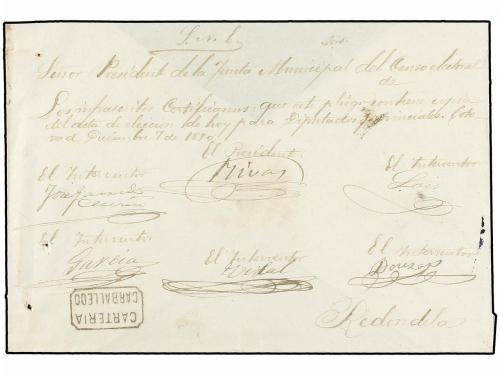 S. N. C.
Señor President de la Junta Municipal del Censo electoral
de
Los infrascritos Certificamos: que este pliego contiene copia
del acta de eleccion de hoy para Diputados Provinciales. Coto
Diciembre 7 de 1890
El President
Rivas
El Interventor
El Interventor
Jose
El Interventor
Garcia
El Interventor
Vidal
El Interventor
CARTERIA
CARBALLEDO
Redondela